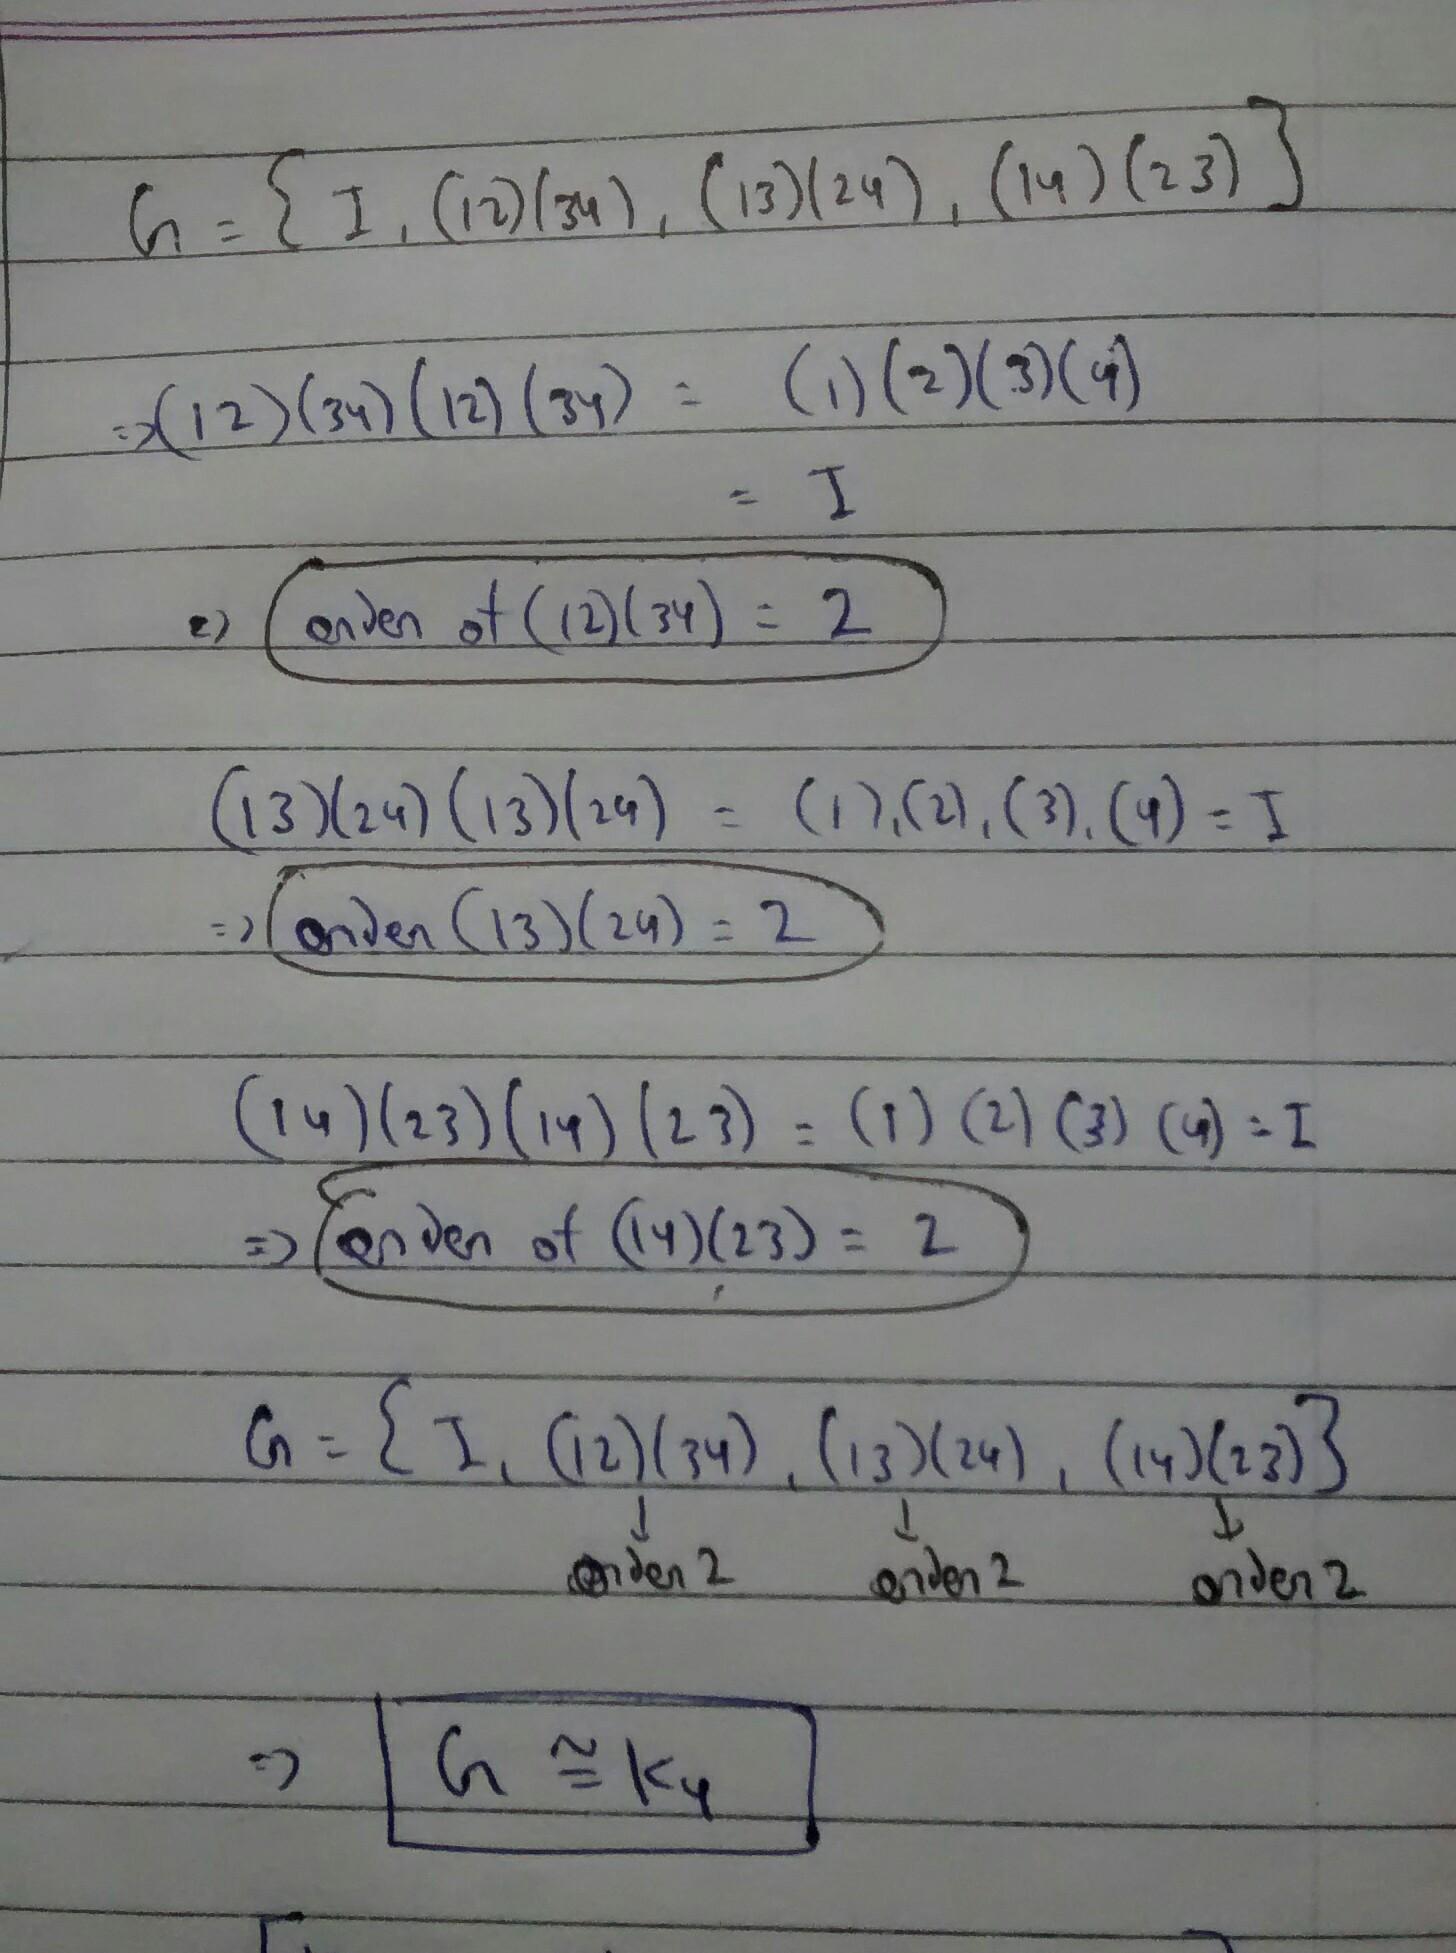 G = { I, (12)(34), (13)(24), (14)(23) }
⇒ (12)(34)(12)(34) = (1)(2)(3)(4)
= I
⇒ order of (12)(34) = 2
(13)(24)(13)(24) = (1),(2),(3),(4) = I
⇒ order (13)(24) = 2
(14)(23)(14)(23) = (1)(2)(3)(4) = I
⇒ order of (14)(23) = 2
G = { I, (12)(34), (13)(24), (14)(23) }
↓ ↓ ↓
order 2 order 2 order 2
⇒ G ≅ K₄